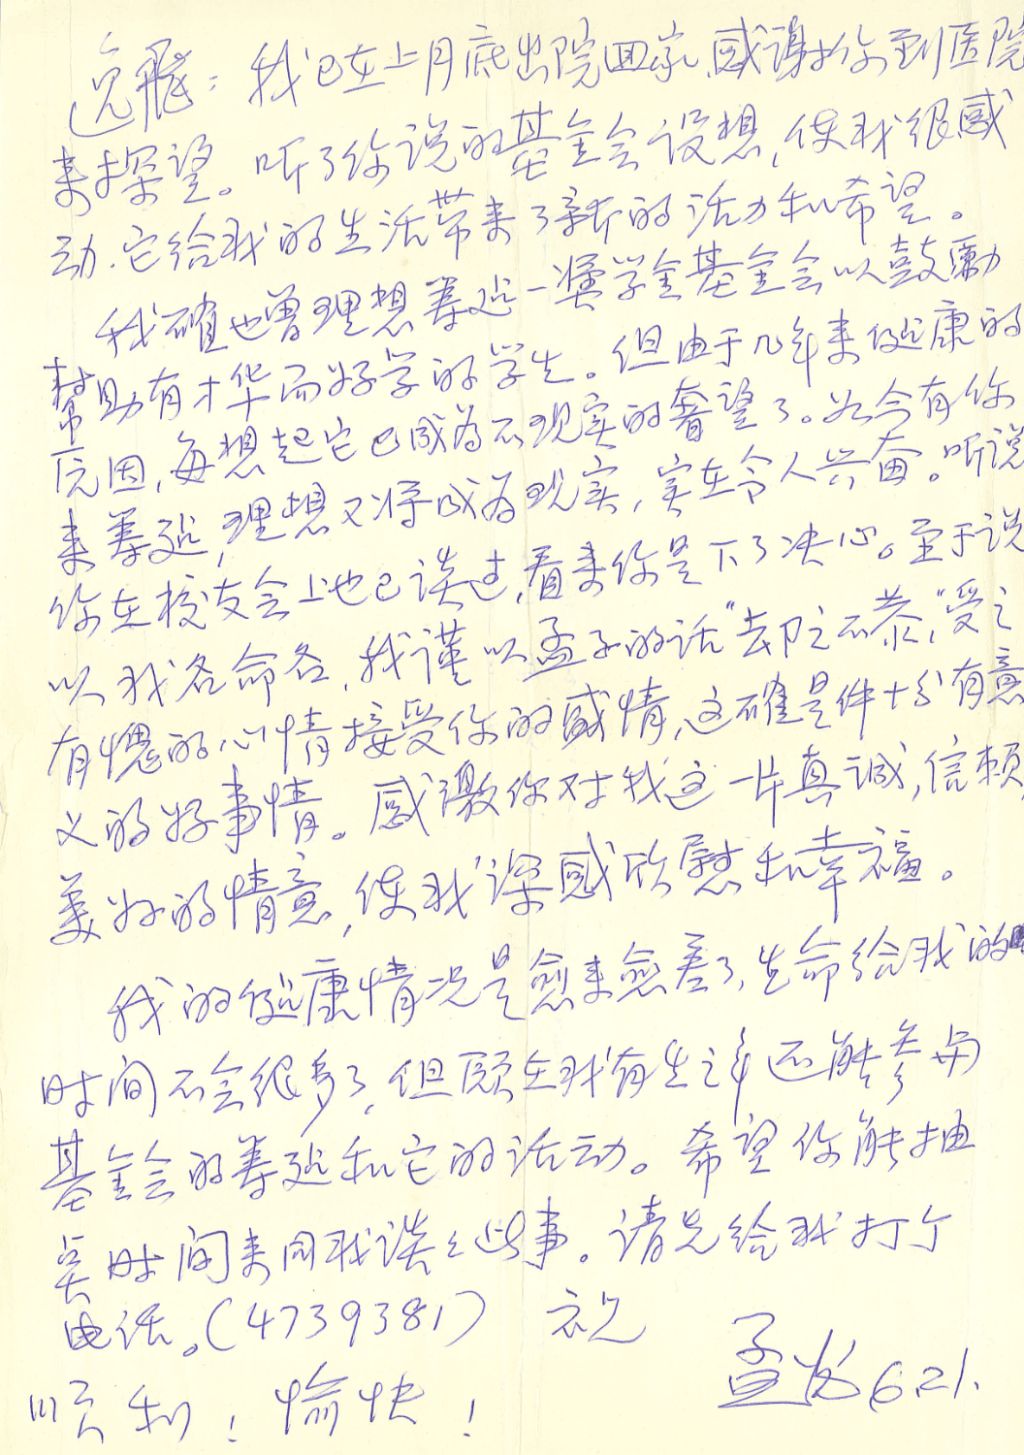 逸飞：我已在上月底出院回家，感谢你到医院
来探望。听了你说的基金会设想，使我很感
动．它给我的生活带来了新的活力和希望。
我確也曾理想筹建一奖学金基金会以鼓勵
幇助有才华而好学的学生。但由于几年来健康的
原因，每想起它已感为不现实的奢望了。如今有你
来筹建，理想又将成为现实，实在令人兴奋。听说
你在校友会上也已谈过，看来你是下了决心。至于说
以我名命名，我谨以孟子的话“却之不恭”，受之
有愧的心情接受你的盛情，这確是件十分有意
义的好事情。感激你对我这一片真诚，信赖，
美好的情意，使我深感欣慰和幸福。
我的健康情况是愈来愈差了，生命给我的
时间不会很多了，但願在我有生之年还能参与
基金会的筹建和它的活动。希望你能抽
点时间来同我谈谈些事。请先给我打个
电话。（4739381） 祝
顺利！愉快！
孟 6.21.